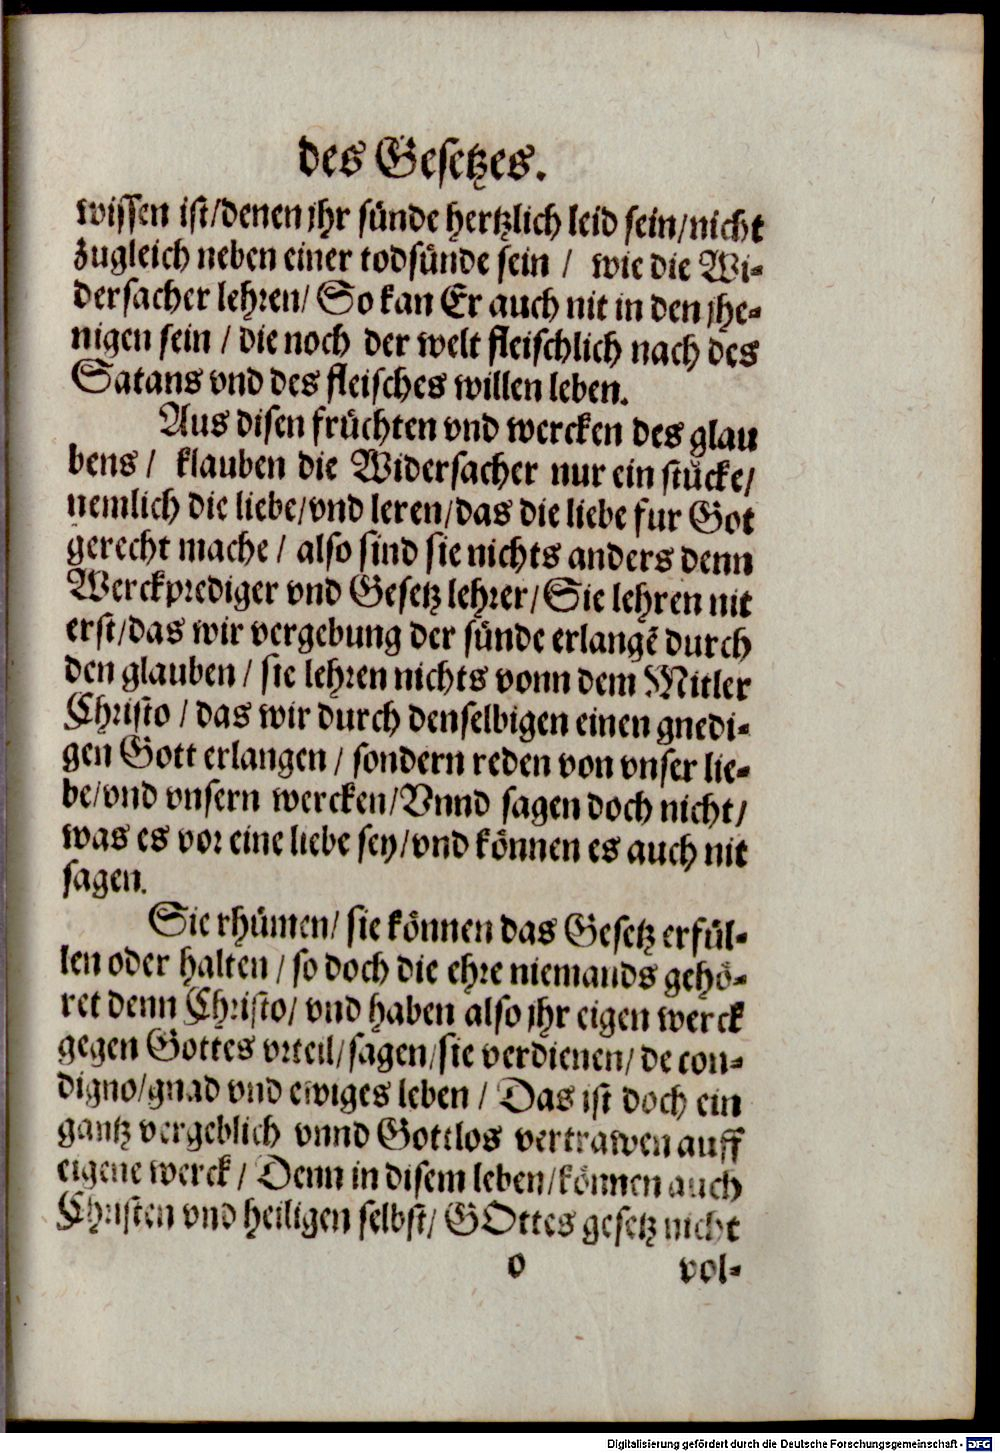 des Gesetzes.
wissen ist/denen jhr sünde hertzlich leid sein/nicht
zugleich neben einer todsünde sein / wie die Wi-
dersacher lehren/ So kan Er auch nit in den jhe-
nigen sein / die noch der welt fleischlich nach des
Satans vnd des fleisches willen leben.
Aus disen früchten vnd wercken des glau
bens / klauben die Widersacher nur ein stücke/
nemlich die liebe/vnd leren/das die liebe fur Got
gerecht mache / also sind sie nichts anders denn
Werckprediger vnd Gesetz lehrer/Sie lehren nit
erst/das wir vergebung der sünde erlangē durch
den glauben / sie lehren nichts vonn dem Mitler
Christo / das wir durch denselbigen einen gnedi-
gen Gott erlangen / sondern reden von vnser lie-
be/vnd vnsern wercken/Vnnd sagen doch nicht/
was es vor eine liebe sey/vnd können es auch nit
sagen.
Sie rhümen/ sie können das Gesetz erfül-
len oder halten / so doch die ehre niemands gehö-
ret denn Christo/ vnd haben also jhr eigen werck
gegen Gottes vrteil/sagen/sie verdienen/ de con-
digno/gnad vnd ewiges leben / Das ist doch ein
gantz vergeblich vnnd Gottlos vertrawen auff
eigene werck / Denn in disem leben/können auch
Christen vnd heiligen selbst/ GOttes gesetz nicht
o vol-
Digitalisierung gefördert durch die Deutsche Forschungsgemeinschaft - DFG